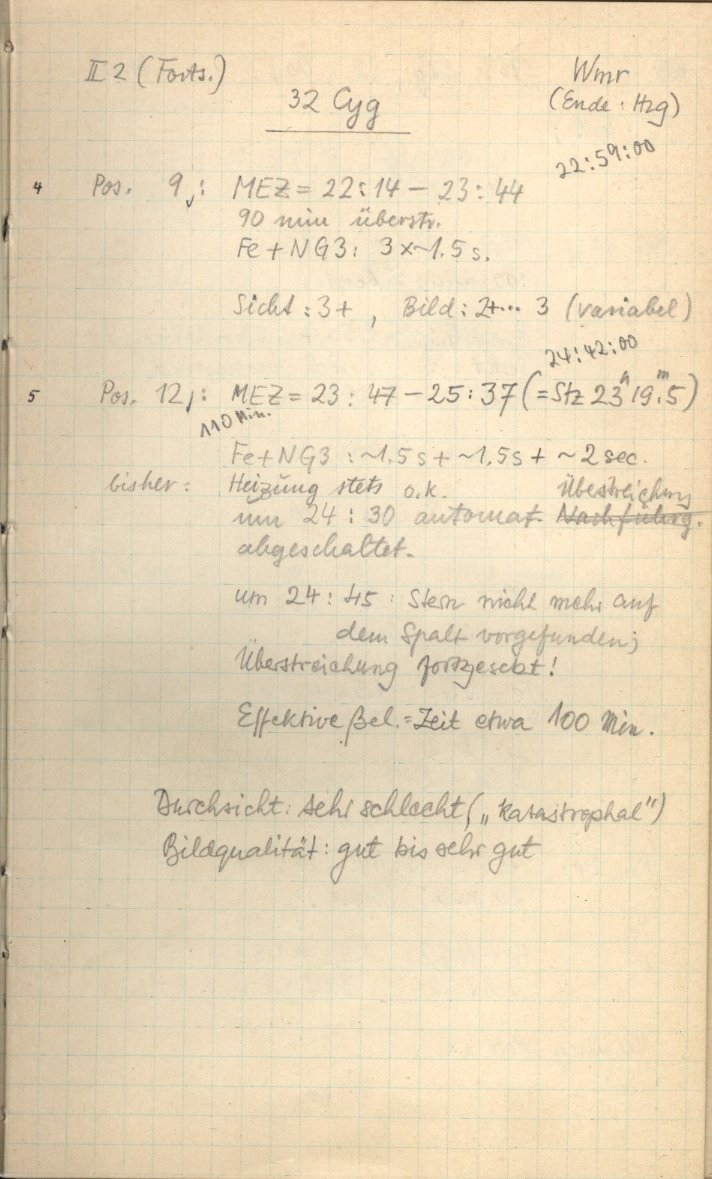 II 2 (Forts.)
Wmr
32 Cyg
(Ende: Hzg)
22:59:00
4 Pos. 9,: MEZ = 22:14 - 23:44
90 min überstr.
Fe + NG3: 3 x ~1.5 s.
Sicht: 3+, Bild: 2+... 3 (variabel)
24:42:00
5 Pos. 12,: MEZ = 23:47 - 25:37 (= Stz 23h 19m.5)
110 Min.
Fe + NG3: ~1.5 s + ~1,5 s + ~2 sec.
bisher: Heizung stets o.k. Überstreichung
um 24:30 automat. Nachführg.
abgeschaltet.
um 24:45: Stern nicht mehr auf
dem Spalt vorgefunden;
Überstreichung fortgesetzt!
Effektive Bel.=Zeit etwa 100 Min.
Durchsicht: sehr schlecht („katastrophal“)
Bildqualität: gut bis sehr gut